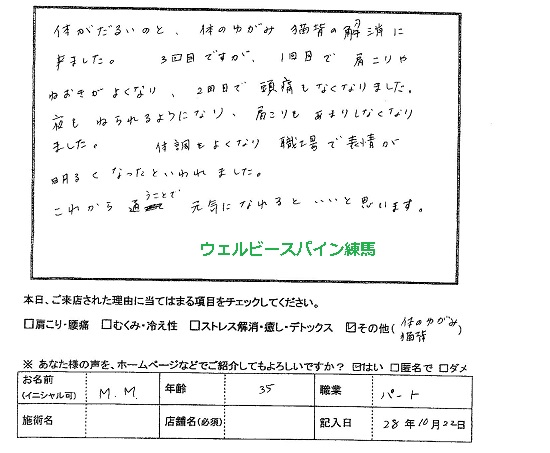 体がだるいのと、体のゆがみ 猫背の解消に
来ました。 3回目ですが、1回目で肩こりや
ねおきがよくなり、2回目で頭痛もなくなりました。
夜もねられるようになり、肩こりもあまりしなくなり
ました。 体調もよくなり 職場で表情が
明るくなったといわれました。
これから通うことで 元気になれるといいと思います。
ウェルビースパイン練馬
本日、ご来店された理由に当てはまる項目をチェックしてください。
□肩こり・腰痛 □むくみ・冷え性 □ストレス解消・癒し・デトックス ☑その他(体のゆがみ 猫背)
※ あなた様の声を、ホームページなどでご紹介してもよろしいですか? ☑はい □匿名で □ダメ
お名前 (イニシャル可) M.M. 年齢 35 職業 パート
施術名 店舗名(必須) 記入日 28年10月22日